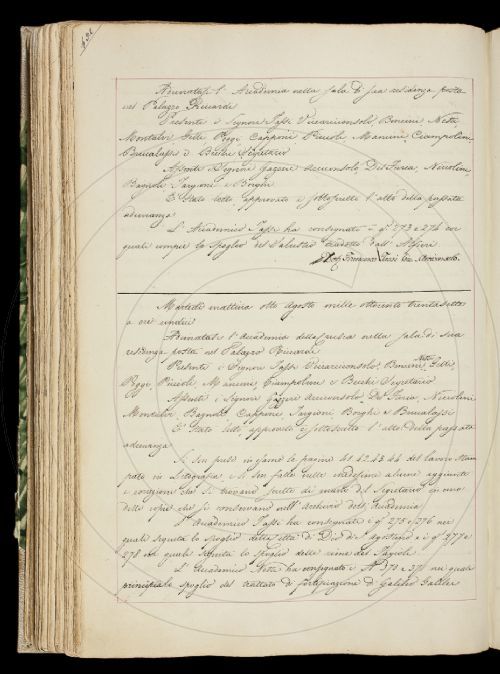 Adunatasi l'Accademia nella sala di sua residenza posta
nel Palazzo Riccardi
Presenti i Signori Tassi Vicearciconsolo, Bencini Nesti
Montalvi Gelli Poggi Capponi Piccioli Manuzzi Ciampolini
Brucalassi e Becchi Segretario
Assenti i Signori Gazzeri Arciconsolo, Del Furia, Niccolini
Bagnoli Targioni e Borghi
È stato letto, approvato e sottoscritto l'atto della passata
adunanza
L'Accademico Tassi ha consegnato i qⁱ 273 e 274 coi
quali compie lo spoglio del Salustio tradotto dall'Alfieri
Martedì mattina otto Agosto mille ottocento trentasette
a ore undici
Adunatasi l'Accademia della Crusca nella sala di sua
residenza posta nel Palazzo Riccardi
Presenti i Signori Tassi Vicearciconsolo, Bencini, Nesti Gelli,
Poggi, Piccioli Manuzzi, Ciampolini e Becchi Segretario
Assenti i Signori Gazzeri Arciconsolo, Del Furia, Niccolini
Montalvi, Bagnoli Capponi, Targioni, Borghi e Brucalassi
È stato letto, approvato e sottoscritto l'atto della passata
adunanza
Si son presi in esame le pagine 41. 42. 43. 44 del lavoro stam
pato in Litografia, e si son fatte sulle medesime alcune aggiunte
e correzioni che si trovano scritte di mano del Segretario in una
delle copie che si conservano nell'Archivio dell'Accademia
L'Accademico Tassi ha consegnato i qⁱ 275 e 276 nei
quali seguita lo spoglio della Città di Dio di S. Agostino e i qⁱ 277 e
278 nei quali seguita lo spoglio delle rime del Fagioli
L'Accademico Nesti ha consegnato i Nⁱ 370 e 371 nei quali
principia lo spoglio del trattato di fortificazione di Galileo Galilei